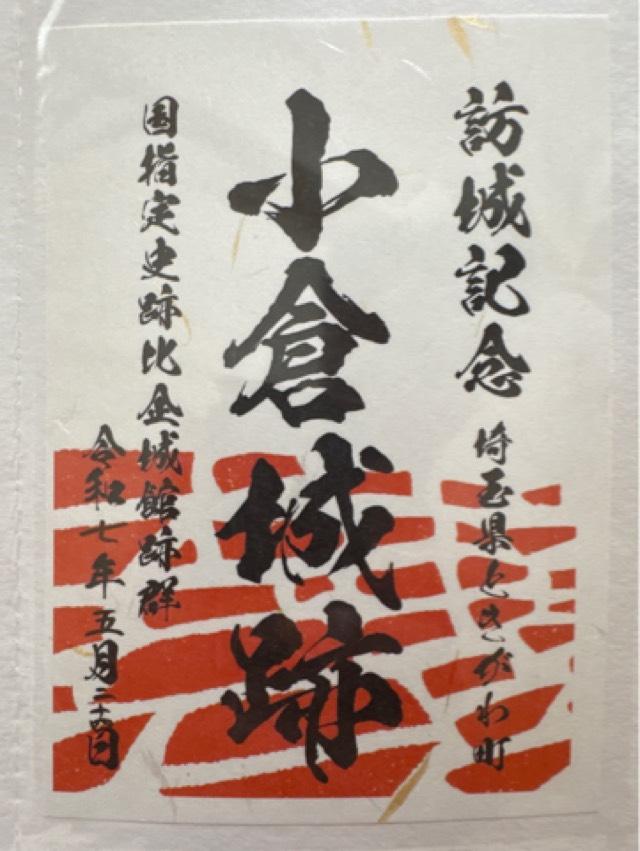 訪城記念 埼玉県ときがわ町
小倉城跡
国指定史跡比企城館跡群
令和七年五月二十六日